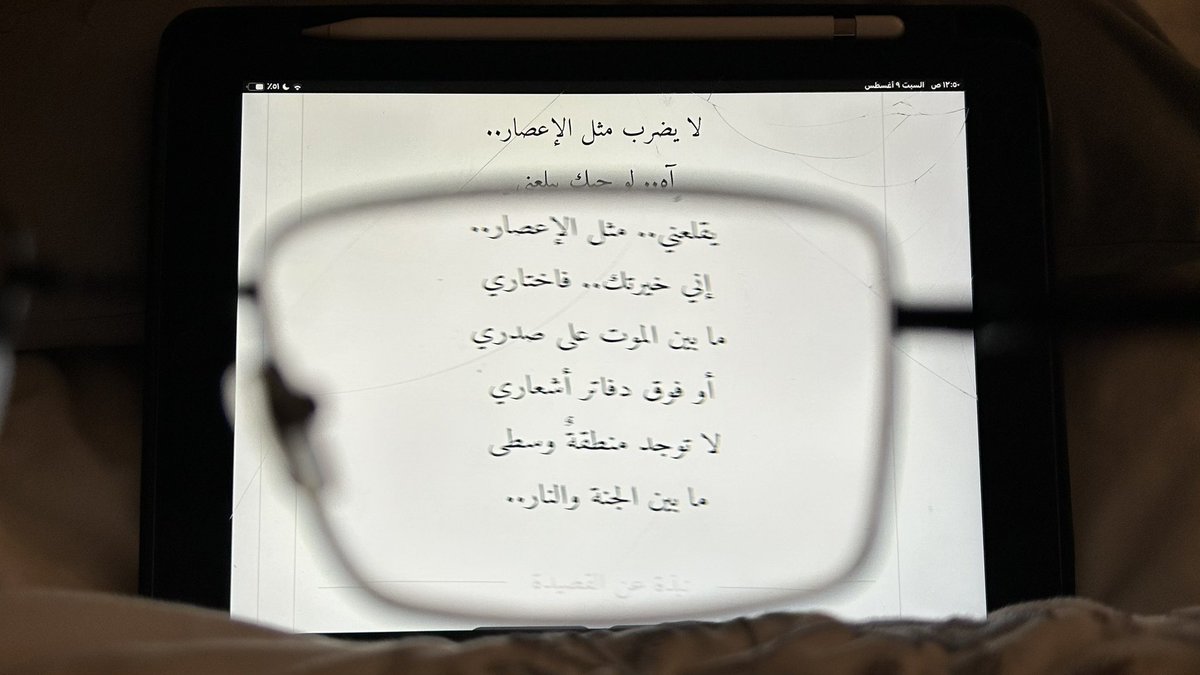 ١٢:٥٠ ص السبت ٩ أغسطس
٥١٪
لا يضرب مثل الإعصار..
آه.. لو حبك يبلعني
يقلعني.. مثل الإعصار..
إني خيرتك.. فاختاري
ما بين الموت على صدري
أو فوق دفاتر أشعاري
لا توجد منطقةٌ وسطى
ما بين الجنة والنار..
نبذة عن القصيدة